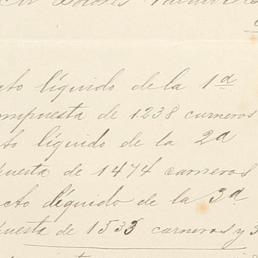 cto líquido de la 1ª
ompuesta de 1238 carneros
to líquido de la 2ª
puesta de 1474 carneros
cto líquido de la 3ª
puesta de 1535 carneros y 3